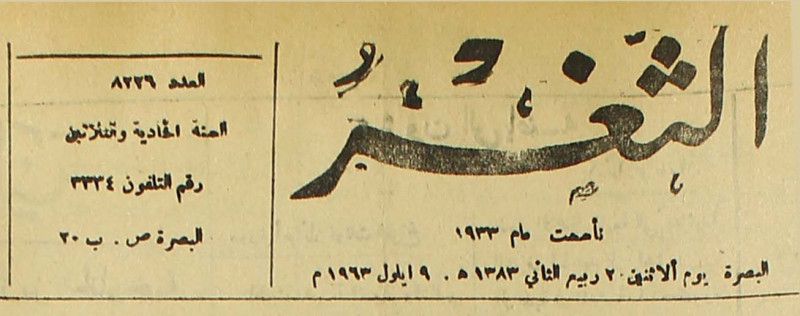 الثغر
تأسست عام ١٩٣٣
البصرة يوم ألاثنين ٢٠ ربيع الثاني ١٣٨٣ ه . ٩ ايلول ١٩٦٣ م
العدد ٨٢٢٦
السنة الحادية والثلاثين
رقم التلفون ٣٣٣٤
البصرة ص . ب ٢٠